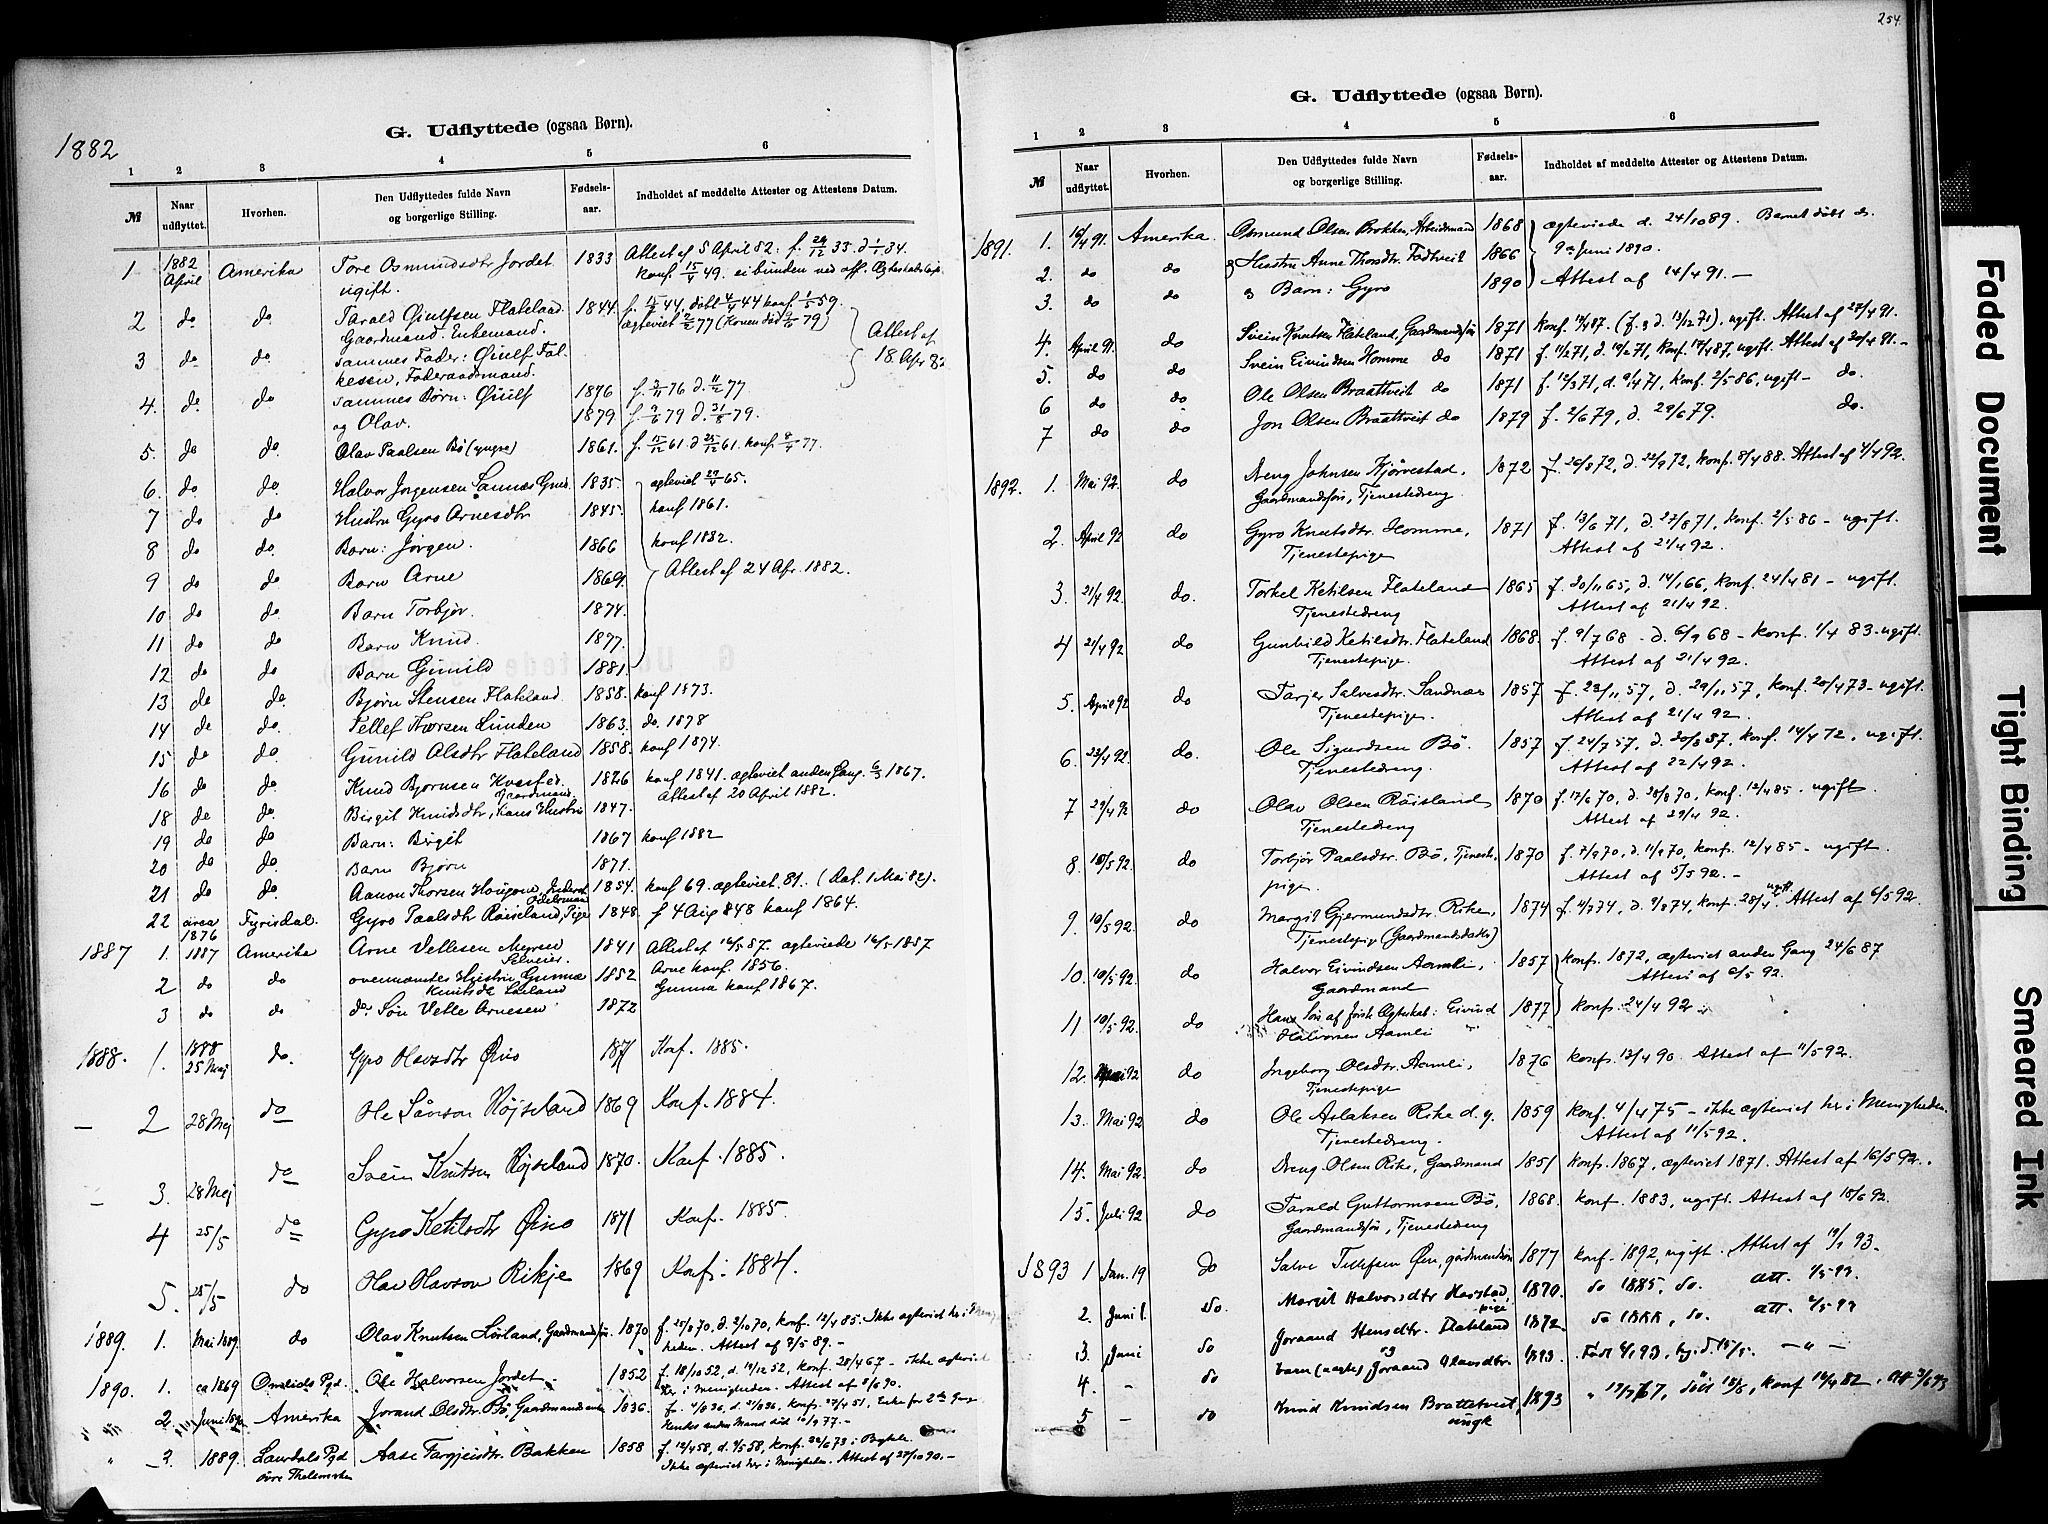 254
G. Udflyttede (ogsaa Børn).
1882
1 2 3 4 5 6
№ Naar udflyttet. Hvorhen. Den Udflyttedes fulde Navn og borgerlige Stilling. Fødsels-aar. Indholdet af meddelte Attester og Attestens Datum.
1 1882 April Amerika Tore Osmundsdtr Jordet 1833 Attest af 5 April 82: f. 24/12 33 d 1/1 34.
ugift. konf 15/4 49. ei bunden ved
2 do do Tarald Øiulfsen Flateland 1844 44 døbt 44 konf. 59.
Gaardmand. Enkemand. ægteviet 77 (Konen død 79) Attest af
3 do do sammes Fader: Øiulf 18 Apr 82
Føderaadsmand.
4. do do sammes Børn: Øiulf 1876 f. 76 d. 77
og Olav. 1879 f. 9/6 79 d. 31/8 79.
5. do do. Olav Paalsen Bø (yngre) 1861. f. 61. d 61. konf. 77.
6. do do. Halvor Jørgensen 1835. ægteviet 65.
7 do do. Hustru Gyro Arnesdtr 1845. konf 1861.
8 do do. Barn: Jørgen. 1866 konf 1882.
9 do do. Barn Arne 1869. Attest af 24 Apr. 1882.
10 do do. Barn Torbjør. 1874.
11 do do Barn Knud. 1877.
12 do do. Barn Gunild 1881.
13 do do. Bjørn Stensen Flateland. 1858. konf 1873.
14 do do. Tellef Lunden 1863. do. 1878
15 do do. Gunild Olsdtr Flateland 1858. konf 1874.
16 do do. Knud Bjørnsen 1826 konf 1841. ægteviet anden Gang. 1867.
Gaardmand. Attest af 20 April 1882.
18 do do. Birgit Knudsdtr, hans Hustru 1847.
19 do do. Barn: Birgit 1867 konf 1882
20 do do. Barn Bjørn 1871.
21 do do. Aanon Thorsen 1854. konf 69. ægteviet 81. (Dat. 1 Mai 82).
22 circa 1876 Fyrisdal. Gyro Paalsdtr Røiseland, Pige 1848. f 4 Aug 848 konf 1864.
1887 1. 1887 Amerika Arne Vellesen 1841 Attest af 16/5 87. ægteviede 16/5 1887
Selveier. Arne konf. 1856.
2 do do ovennævntes Hustru Gunna 1852 Gunna konf 1867.
3 do do do. Søn Velle Arnesen 1872
1888. 1. 1888 25 Maj do. Gyro Olavsdtr 1871 Konf. 1885.
— 2 28 Mej do Ole Røjseland 1869 Konf. 1884.
— 3. 28 Mej do Svein Knutsen Røjseland 1870. Konf. 1885.
4 25/5 do Gyro Ketilsdtr 1871 Konf. 1885.
5. 25/5 do Olav Olavson Rikje 1869 Konf. 1884.
1889. 1. Mai 1889. do Olav Knutsen Lørland, Gaardmandssøn. 1870 f. 25/8 70, d. 2/10 70, konf. 12/4 85. Ikke ægteviet her i Menig-
heden. Attest af 2/5 89. —
1890. 1. ca 1869 Omlids Pgd. Ole Halvorsen Jordet 1852 f. 18/10 52, d. 19/12 52, konf. 28/4 67 — ikke ægteviet
her i Menigheden. Attest af 8/6 90.
" 2. Juni 1890 Amerika Jorand Olsdtr. Bø, 1836. konf. 27/4 51, Enke for 2den Gang
hendes anden Mand død 10/9 77. —
" 3. 1889. Laurdals Pgd Aase Targjeisdtr. Bakken 1858 f. 12/4 58, d. 9/5 58, konf. 22/6 73 i Bykle.
øvre Thelemarken Ikke ægteviet her i Menigheden. Attest af 27/10 90. —
G. Udflyttede (ogsaa Børn).
1 2 3 4 5 6
№ Naar udflyttet. Hvorhen. Den Udflyttedes fulde Navn og borgerlige Stilling. Fødsels-aar. Indholdet af meddelte Attester og Attestens Datum.
1891. 1. 16/4 91. Amerika. Osmund Olsen Brokken, Arbeidsmand 1868 ægteviede d. 24/10 89. Barnet døbt d.
2. do do Hustru Anne Thorsdtr. 1866 9de Juni 1890.
3. do do & Barn: Gyro 1890 Attest af 14/4 91. —
4. April 91. do Svein Knutsen Flateland, Gaardmandssøn 1871 konf. 17/4 87. (f. & d. 13/12 71). ugift. Attest af 27/4 91.
5. do do Svein Eivindsen Homme do 1871 f. 11/2 71, d. 19/2 71, konf. 17/4 87, ugift. Attest af 20/4 91. —
6 do do Ole Olsen Braattveit do 1871 f. 12/3 71, d. 9/4 71, konf. 2/5 86, ugift — do.
7 do do Jon Olsen Braattveit do 1879 f. 2/6 79, d. 29/6 79. do.
1892. 1. Mai 92. do Dreng Johnsen Kjørvestad, 1872 f. 26/8 72, d. 22/9 72, konf. 8/4 88. Attest af 4/4 92.
Gaardmandssøn, Tjenestedreng
2. April 92 do Gyro Knutsdtr. Homme, 1871 f. 13/6 71, d. 27/8 71, konf. 2/5 86 — ugift.
Tjenestepige Attest af 21/4 92.
3. 21/4 92. do. Torkel Ketilsen Flateland 1865 f. 20/11 65, d. 14/1 66, konf. 24/4 81 — ugift.
Tjenestedreng Attest af 21/4 92.
4 21/4 92 do Gunhild Ketilsdtr. Flateland 1868. f. 9/7 68 — d. 6/9 68 — konf. 1/4 83 — ugift.
Tjenestepige. Attest af 21/4 92.
5. April 92 do Tarjer Salvesdtr. Sandnæs 1857 f. 23/11 57, d. 29/11 57, konf. 20/4 73 — ugift.
Tjenestepige. Attest af 21/4 92.
6. 23/4 92 do. Ole Sigurdsen Bø. 1857 f. 24/7 57, d. 20/8 57, konf. 14/4 72, ugift.
Tjenestedreng. Attest af 22/4 92.
7 29/4 92 do Olav Olsen Røisland 1870 f. 17/6 70, d. 28/8 70, konf. 12/4 85. ugift
Tjenestedreng Attest af 29/4 92.
8. 10/5 92. do Torbjør Paalsdtr. Bø, Tjeneste- 1870 f. 7/9 70, d. 11/9 70, konf. 12/4 85 — ugift.
pige. Attest af 5/5 92. —
9. 10/5 92. do Margit Gjermundsdtr. Rike, 1874 f. 4/7 74, d. 9/8 74, konf. 28/4 ugift. Attest af 6/5 92
Tjenestepige (Gaardmandsdatter)
10. 10/5 92. do Halvor Eivindsen Aamli, 1857 konf. 1872, ægteviet anden Gang 24/6 87
Gaardmand Attest af 6/5 92.
11 10/5 92. do Hans Søn af første Ægteskab: Eivind 1877 konf. 24/4 92
Halvorsen Aamli
12. Mai 92 do Ingeborg Olsdtr. Aamli, 1876 konf. 13/4 90. Attest af 11/5 92.
Tjenestepige
13. Mai 92 do Ole Aslaksen Rike d. y. 1859 konf. 4/4 75 — ikke ægteviet her i Menigheden.
Tjenestedreng. Attest af 11/5 92.
14. Mai 92 do Dreng Olsen Rike, Gaardmand 1851 konf. 1867, ægteviet 1871. Attest af 16/5 92.
15. Juli 92 do Tarald Guttormsen Bø, 1868. konf. 1883, ugift. Attest af 18/6 92.
Gaardmandssøn, Tjenestedreng
1893 1 Jan. 19 do Salve Tellefsen 1877 konf. 1892, ugift. Attest af 93.
2. Juni 1. do. Margit Halvorsdtr Harstad, pige 1870. do 1885, do. att. /5 93.
3. Juni do Joraand Flateland 1872. do 1888, do. att. /5 93
4. — do barn (uægte) Joraand Olavsdtr. 1893. Født 93, — " —
5 — do Knud Knudsen Brattetveit, ungk 1893 konf 16/4 82.
Faded Document
Tight Binding
Smeared Ink